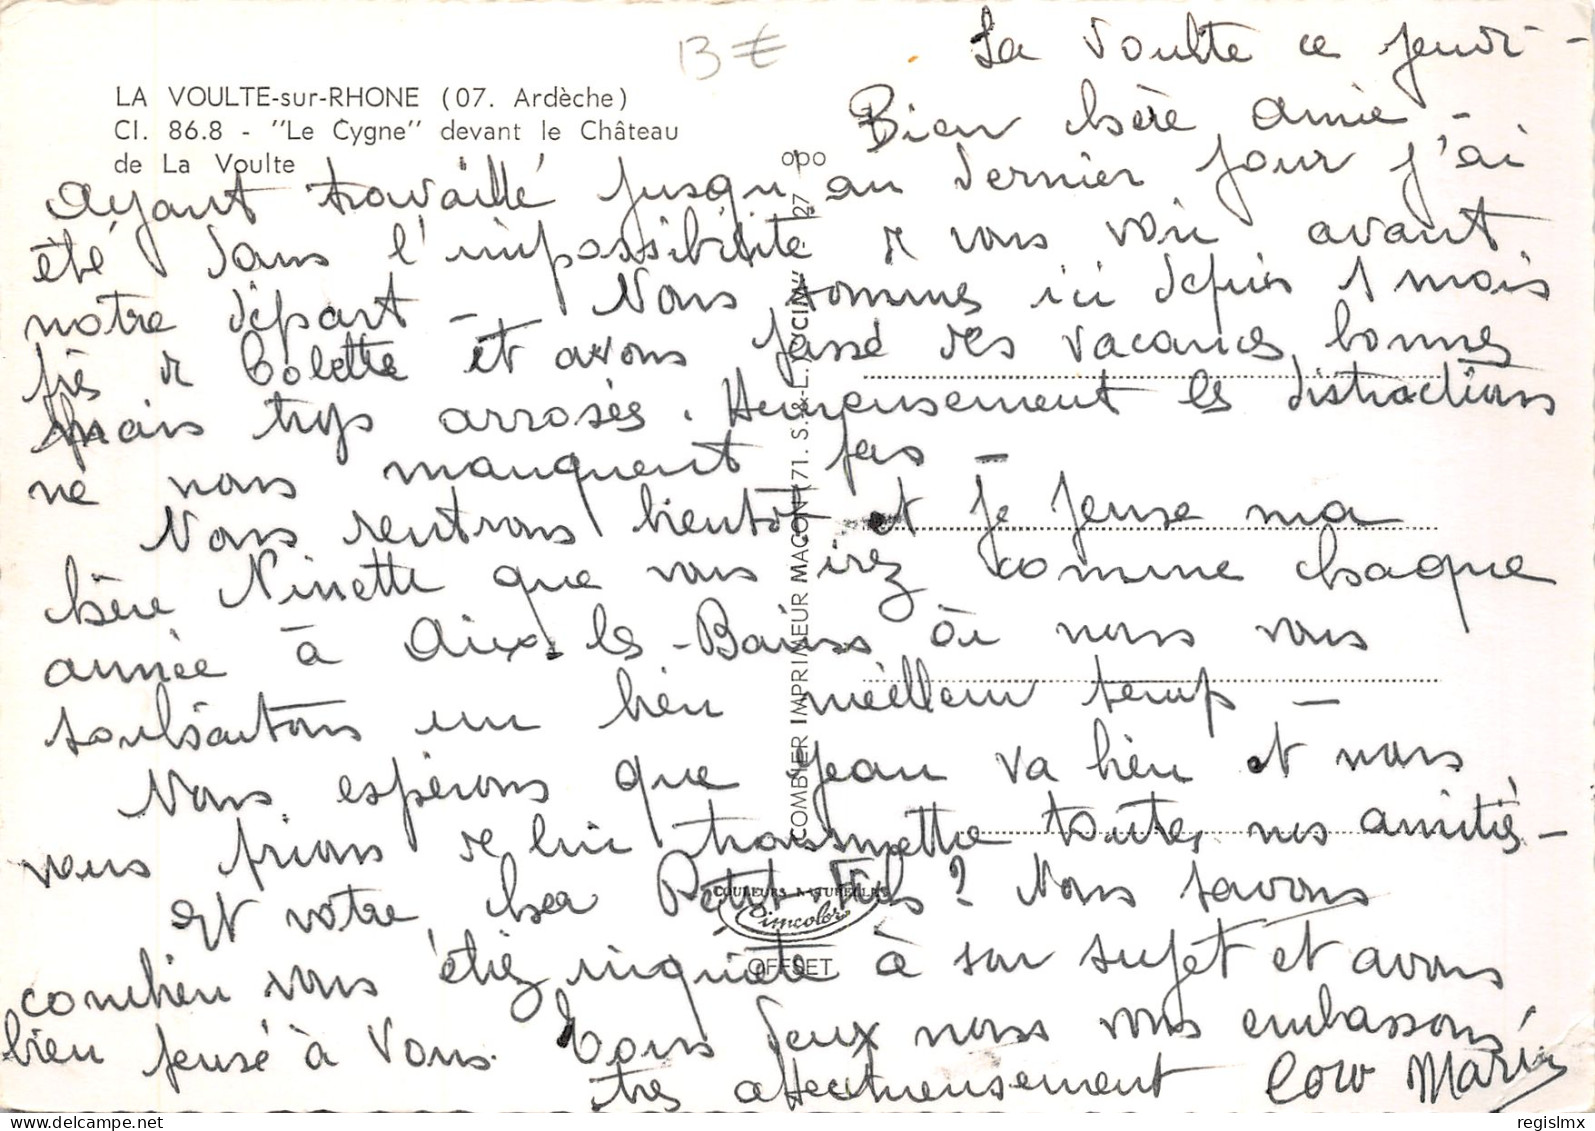 13 €
La Voulte ce jeudi -
LA VOULTE-sur-RHONE (07. Ardèche)
Cl. 86.8 - "Le Cygne" devant le Château
de La Voulte
Bien chère amie -
Ayant travaillé jusqu'au dernier jour j'ai
été dans l'impossibilité de vous voir avant
notre départ - Nous sommes ici depuis 1 mois
près de Colette et avons passé des vacances bonnes
mais trop arrosées. Heureusement les distractions
ne nous manquent pas -
Nous rentrons bientôt et je pense ma
chère Ninette que vous irez comme chaque
année à Aix les-Bains où nous vous
souhaitons un bien meilleur temps -
Nous espérons que Jean va bien et nous
vous prions de lui transmettre toutes nos amitiés -
Et votre cher Petit-Fils? Nous savons
combien vous étiez inquiète à son sujet et avons
bien pensé à Vous. Tous deux nous vous embrassons
très affectueusement
COMBIER IMPRIMEUR MACON (71. S.-&-L.) "CIM"
COULEURS NATURELLES
Cimcolor
OFFSET
regislmx